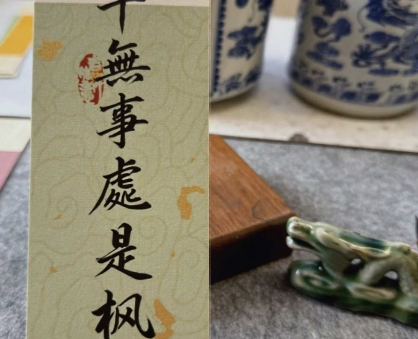 無事處是枫